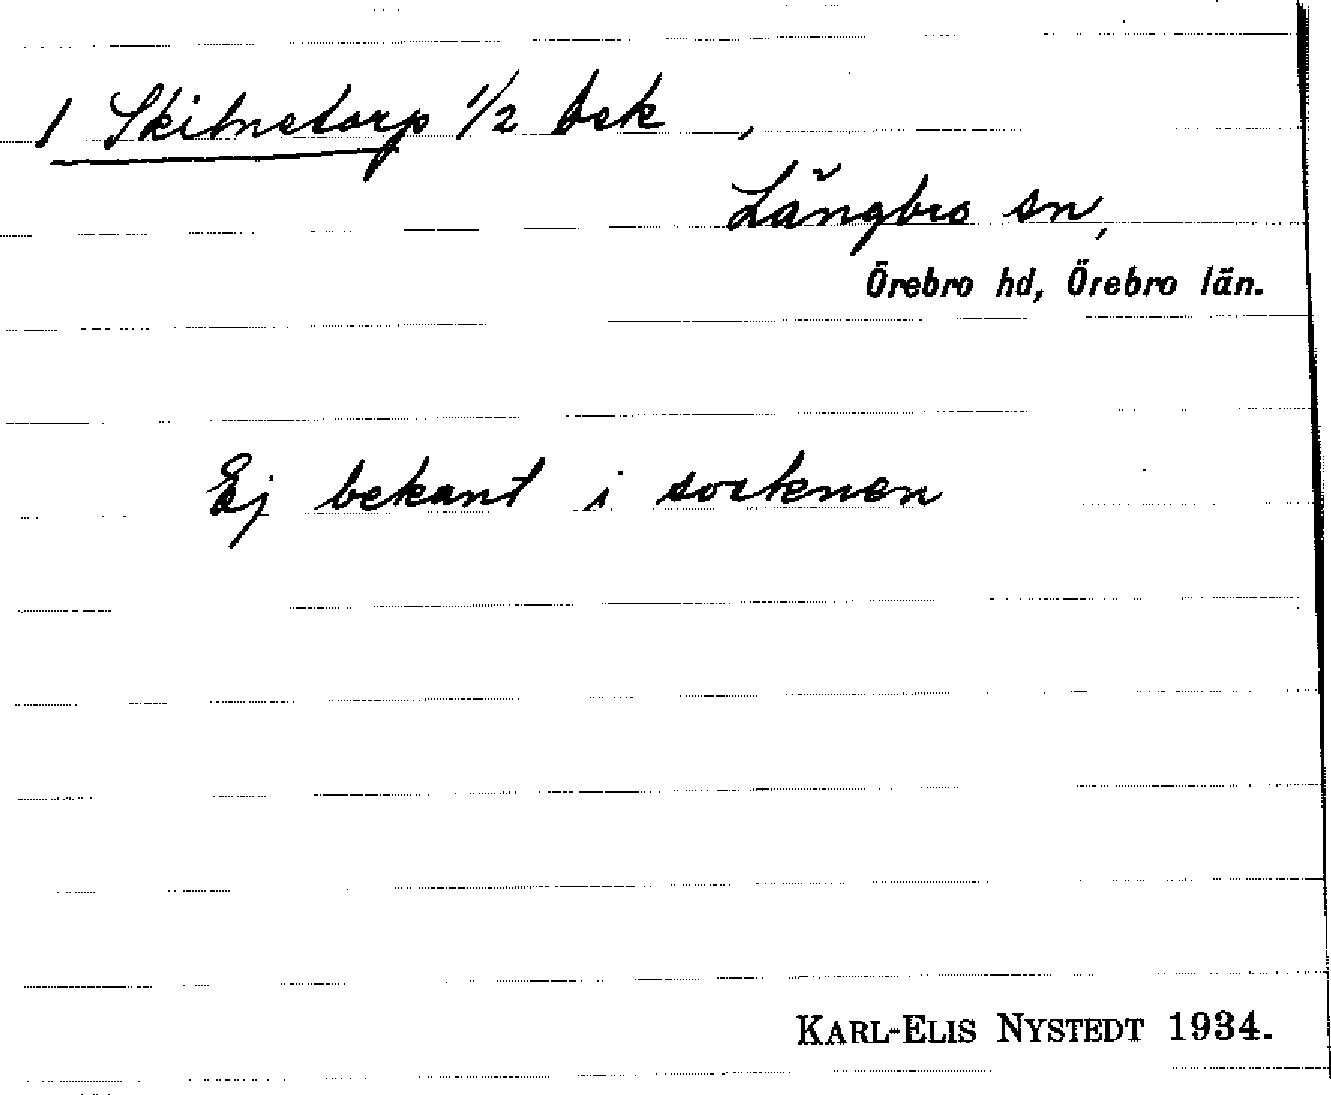 1 Skilnetorp 1/2 bek ,
Långbro sn,
Örebro hd, Örebro län.
Ej bekant i socknen
KARL-ELIS NYSTEDT 1934.